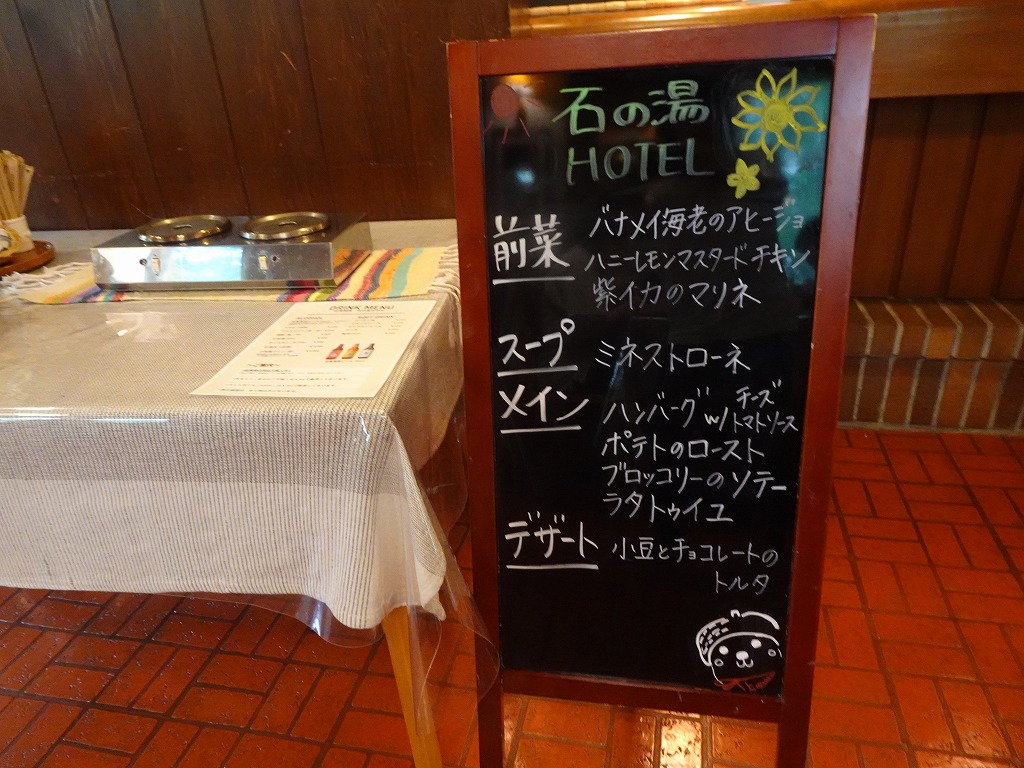 石の湯
HOTEL
前菜
バナメイ海老のアヒージョ
ハニーレモンマスタードチキン
紫イカのマリネ
スープ
ミネストローネ
メイン
ハンバーグ w/ チーズ
トマトソース
ポテトのロースト
ブロッコリーのソテー
ラタトゥイユ
デザート
小豆とチョコレートの
トルタ
DRINK MENU